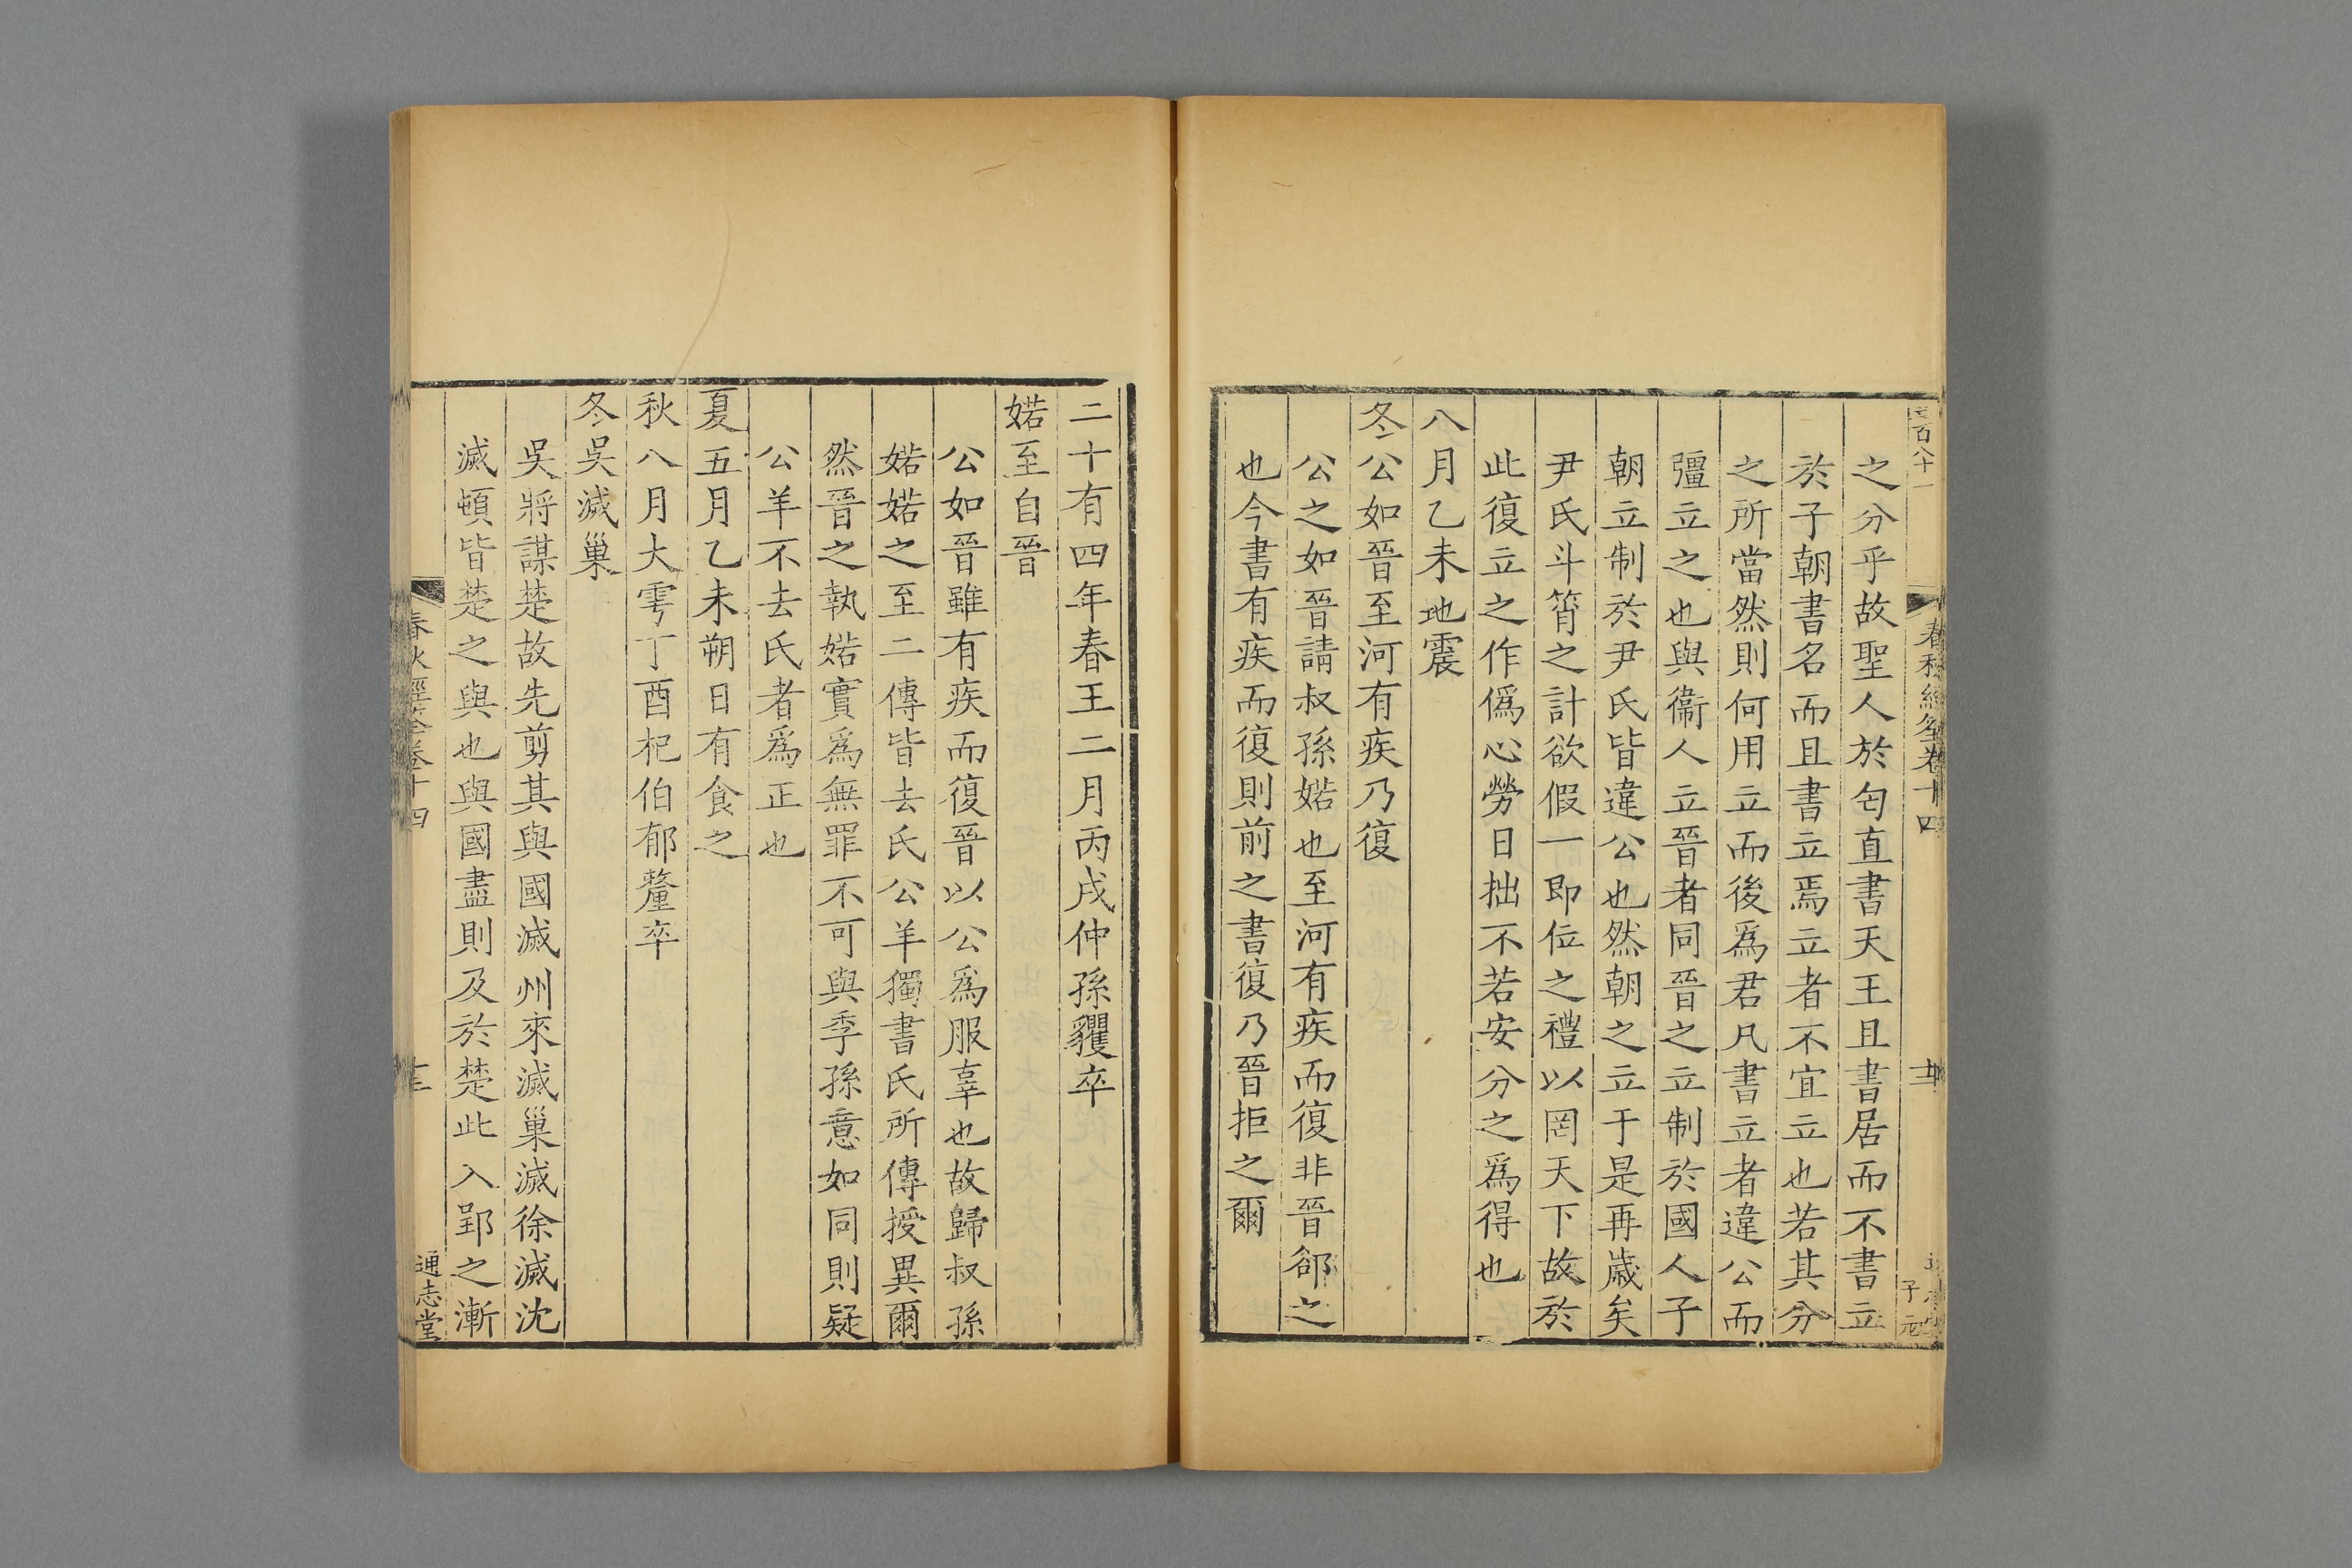 之分乎故聖人於匄直書天王且書居而不書立
於子朝書名而且書立焉立者不宜立也若其分
之所當然則何用立而後爲君凡書立者違公而
彊立之也與衞人立晉者同晉之立制於國人子
朝立制於尹氏皆違公也然朝之立于是再歲矣
尹氏斗筲之計欲假一即位之禮以罔天下故於
此復立之作僞心勞日拙不若安分之爲得也
八月乙未地震
冬公如晉至河有疾乃復
公之如晉請叔孫婼也至河有疾而復非晉郤之
也今書有疾而復則前之書復乃晉拒之爾
二十有四年春王二月丙戌仲孫貜卒
婼至自晉
公如晉雖有疾而復晉以公爲服辜也故歸叔孫
婼婼之至二傳皆去氏公羊獨書氏所傳授異爾
然晉之執婼實爲無罪不可與季孫意如同則疑
公羊不去氏者爲正也
夏五月乙未朔日有食之
秋八月大雩丁酉杞伯郁釐卒
冬吳滅巢
吳將謀楚故先剪其與國滅州來滅巢滅徐滅沈
滅頓皆楚之與也與國盡則及於楚此入郢之漸
春秋經筌卷十四
通志堂